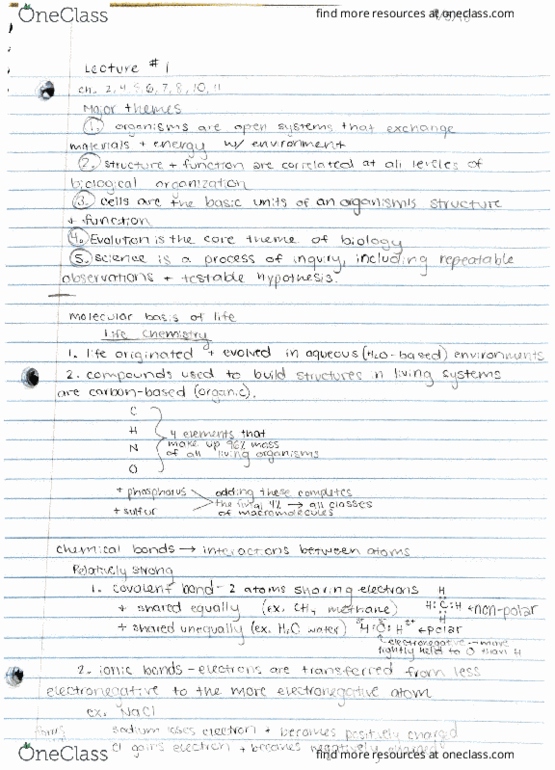 OneClass
find more resources at oneclass.com
Lecture #1
ch. 2,4,5,6,7,8,10,11
Major themes
1. organisms are open systems that exchange
materials + energy w/ environment
2. structure + function are correlated at all levels of
biological organization
3. cells are the basic units of an organism's structure
+ function
4. Evolution is the core theme of biology
5. science is a process of inquiry, including repeatable
observations + testable hypothesis.
molecular basis of life
Life Chemistry
1. life originated + evolved in aqueous (H2O-based) environments
2. compounds used to build structures in living systems
are carbon-based (organic).
C
H
N
O
4 elements that
make up 96% mass
of all living organisms
+ phosphorus
+ sulfur
adding these completes
the final 4% → all classes
of macromolecules
chemical bonds → interactions between atoms
Relatively strong
1. covalent bond - 2 atoms sharing electrons
+ shared equally (ex. CH4 methane)
H
H:C:H ← non-polar
H
+ shared unequally (ex. H2O water)
H:O:H ← polar
electronegative - more
tightly held to O than H
2. ionic bonds - electrons are transferred from less
electronegative to the more electronegative atom
ex. NaCl
sodium loses electron + becomes positively charged
Cl gains electron + becomes negatively charged
OneClass
find more resources at oneclass.com